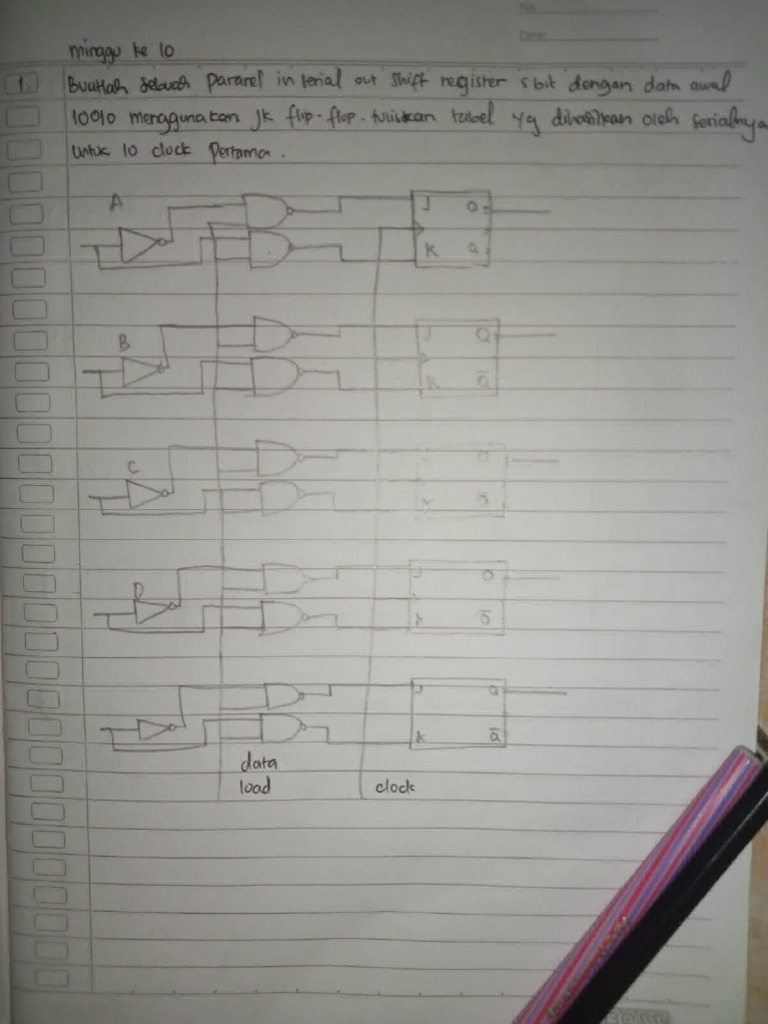 No.
Date:
minggu ke 10
1. Buatlah sebuah Pararel in serial out shift register 5 bit dengan data awal
10010 menggunakan JK flip-flop. tuliskan tabel yg dihasilkan oleh serialnya
untuk 10 clock Pertama.
A
J Q
K Q
B
J Q
K Q̅
C
J Q
K Q̅
D
J Q
K Q̅
J Q
K Q̅
data
load clock